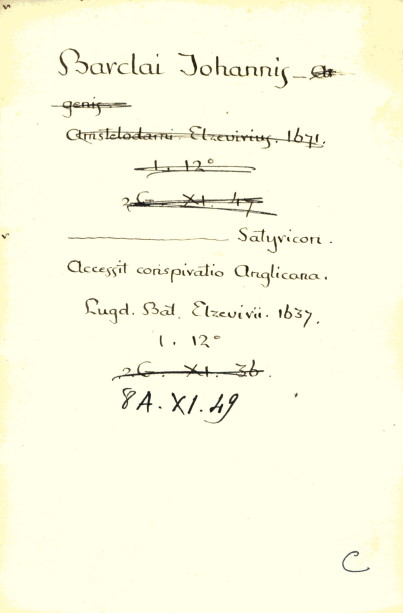 Barclai Johannis_ Ar
genis
Amstelodami. Elzevirius. 1671.
1. 12°
2G. XI. 47
Satyricon.
Accessit conspiratio Anglicana.
Lugd. Bat. Elzevirii. 1637.
1. 12°
2G. XI. 36.
8A. XI. 49
C